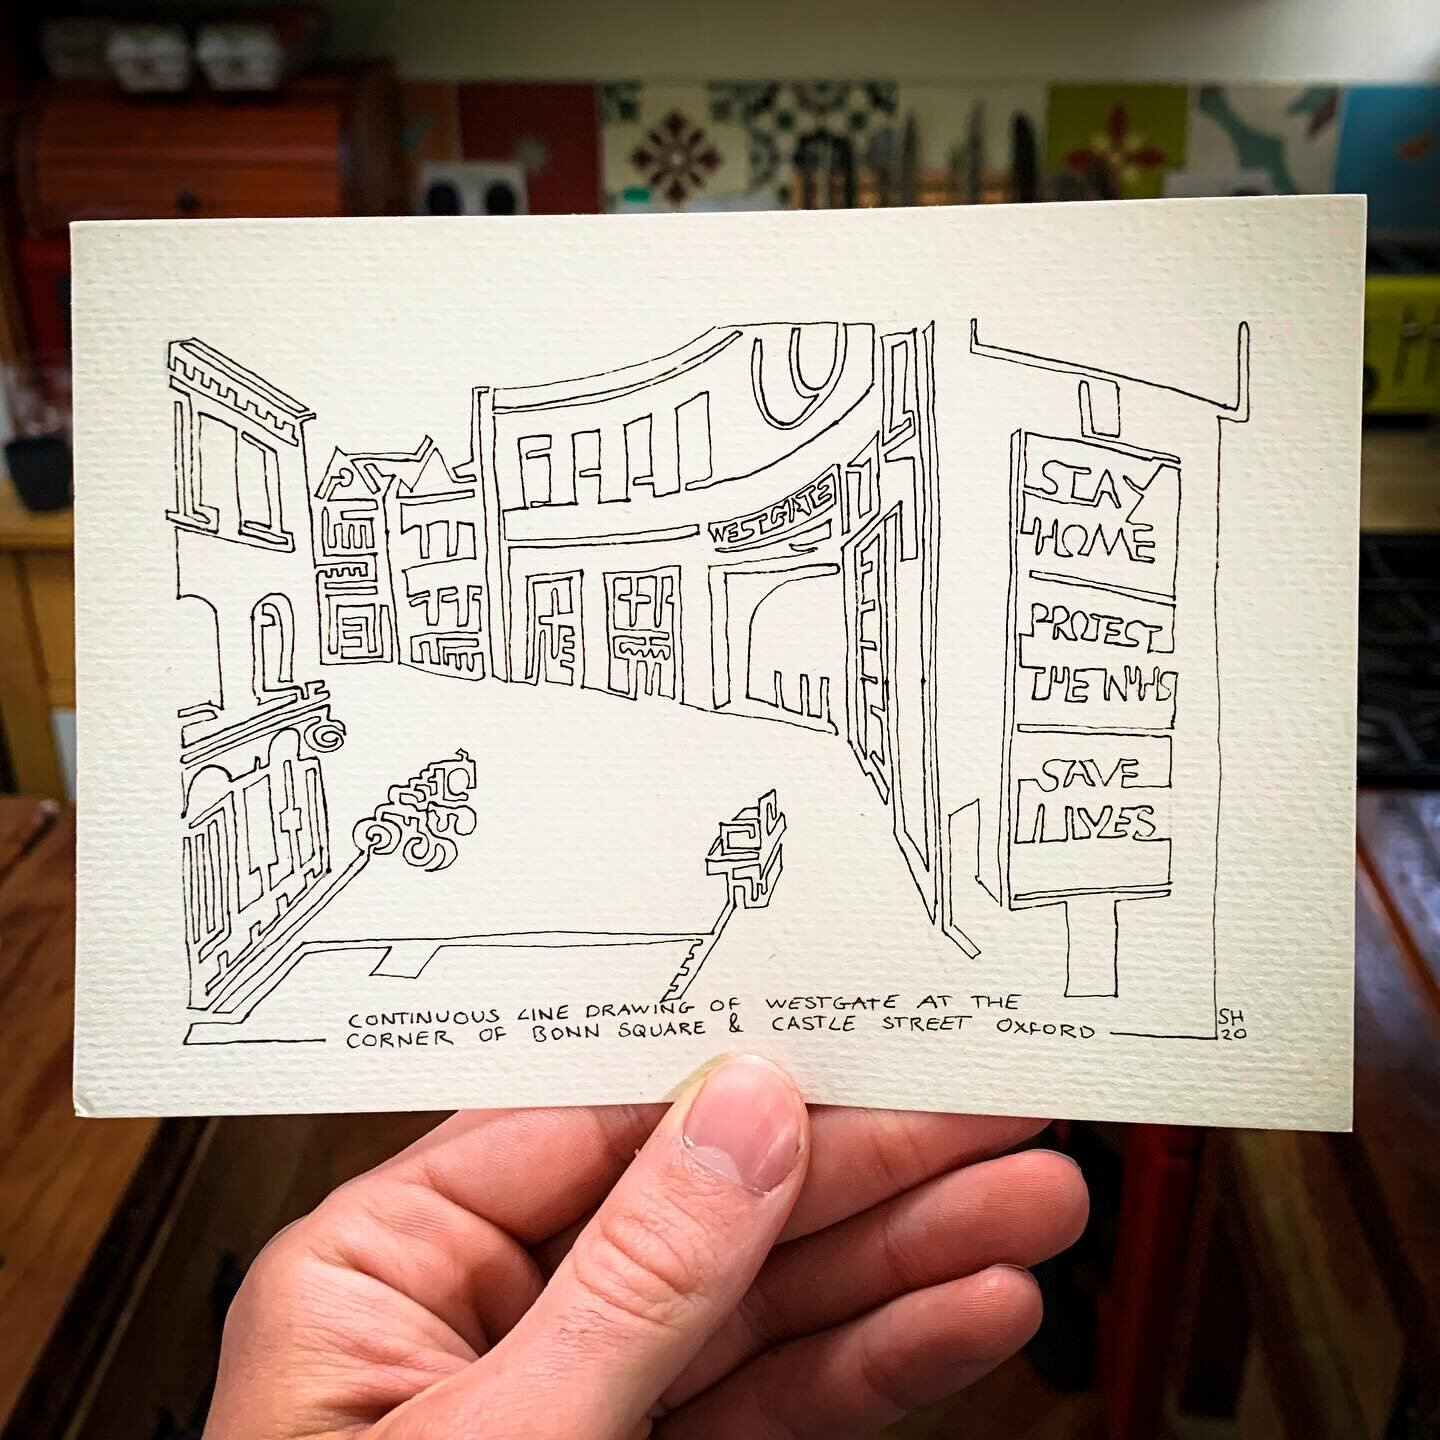 WESTGATE
STAY
HOME
PROTECT
THE NHS
SAVE
LIVES
CONTINUOUS LINE DRAWING OF WESTGATE AT THE
CORNER OF BONN SQUARE & CASTLE STREET OXFORD
SH
20